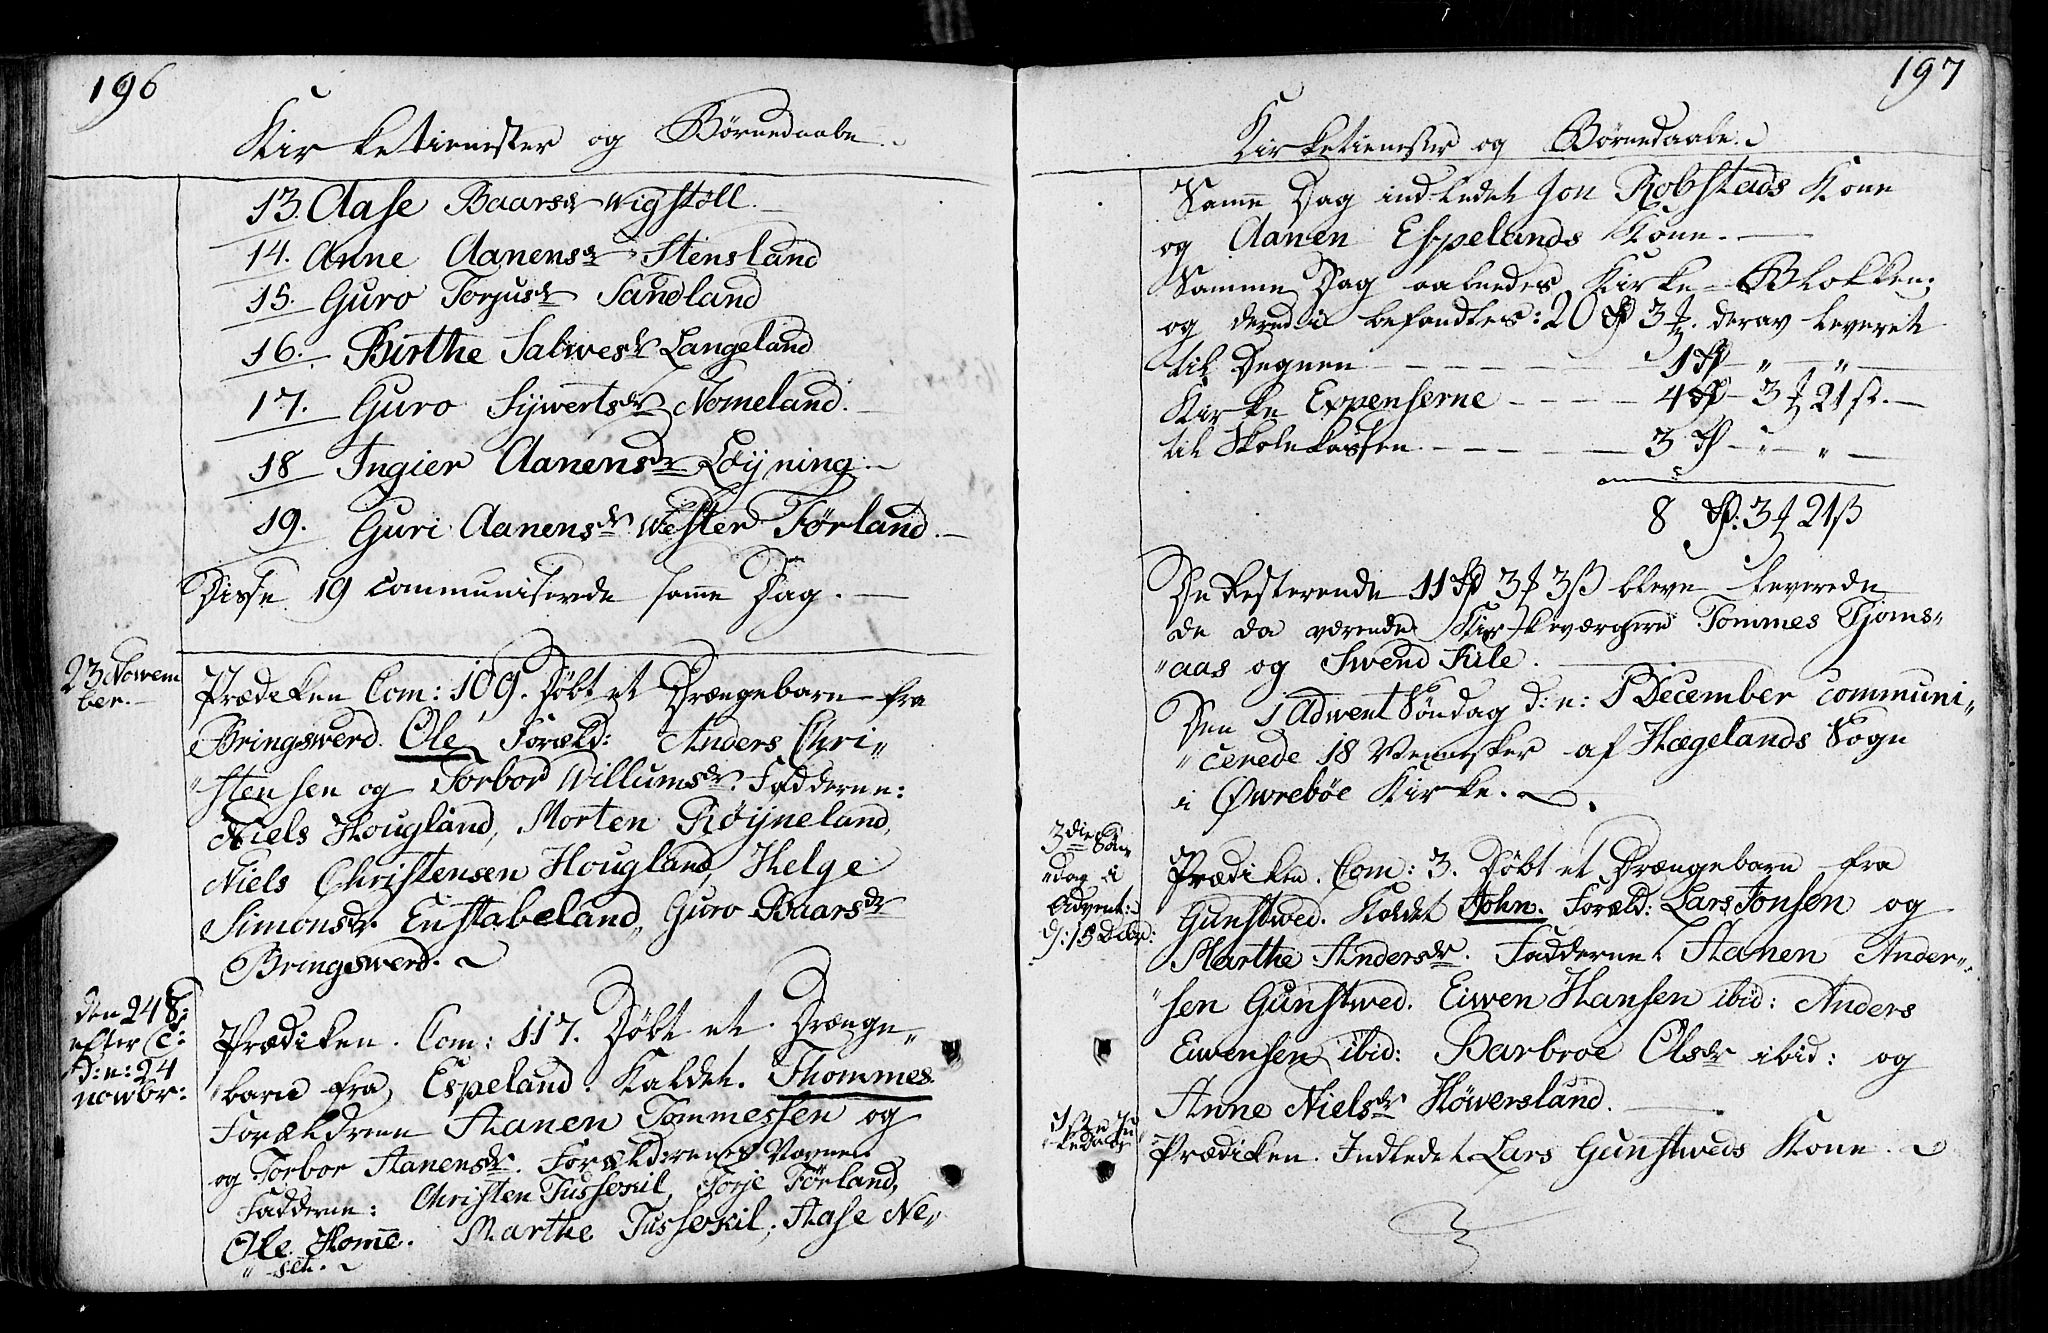 196
Kirketienester og Børnedaabe.
13. Aase Baarsdr Wigstøll.
14. Anne Aanensdr Stensland
15. Guro Torjusdr Sandland
16. Birthe Salwesdr Langeland
17. Guro Sywertsdr Nomeland.
18 Ingier Aanensdr Løyning.
19. Guri Aanensdr Wester Førland.
Disse 19 communiserede samme Dag.
23 Novem
ber.
Prædeken Com: 109. Døbt et Drængebarn fra
Bringswerd. Ole, Foræld: Anders Chri„
„stensen og Torbor Willumsdr. Fadderne:
Niels Hougland, Morten Røyneland,
Niels Christensen Hougland, Helge
Simonsdr. Eustabeland, Guro Baarsdr
Bringswerd.
den 24 S:
efter T:
d:n: 24
nowbr:
Prædiken. Com: 117. Døbt et Drænge„
„barn fra Espeland. Kaldet. Thommes.
Forældrene Aanen Tommessen og
og Torbor Aanensdr. Forældrenes Navne.
Fadderne: Christen Tussekil, Torje Førland,
Ole Home. Marthe Tusseskil, Aase Ne„
„set.
197
Kirketienester og Børnedaabe.
Samme Dag indledet Jon Robstads Kone
og Aanen Espelands Kone.
Samme Dag aabnedes Kirke-Blokken;
og derudi befandtes: 20 rd 3 ort. derav leveret
til Degnen 1 rd „ „
Kirke Expenserne 4 rd 3 ort 21 ß.
til Skolekassen 3 rd „ „
8 rd: 3 ort 21 ß
De Resterende 11 rd 3 ort 3 ß bleve leverede
de da værende Kirkeværgere Tommes Tjoms„
„aas og Swend Kile.
Den 1 Adwent Søndag d:n: 1 December communi„
„cerede 18 Mennesker af Hægelands Sogn
i Øwrebøe Kirke.
3die Søn„
„dag i
Advent:
d: 15 Debr:
Prædiken. Com: 3. Døbt et Drængebarn fra
Gunstwed. Kaldet John. Foræld: Lars Jonsen og
Marthe Andersdr. Fadderne. Aanen Ander„
„sen Gunstwed. Eiwen Hansen ibid: Anders
Eiwensen ibid: Barbroe Olsdr ibid: og
Anne Nielsdr Höwersland.
1ste Ju
ledag
Prædiken. Indledet Lars Gunstweds Kone.